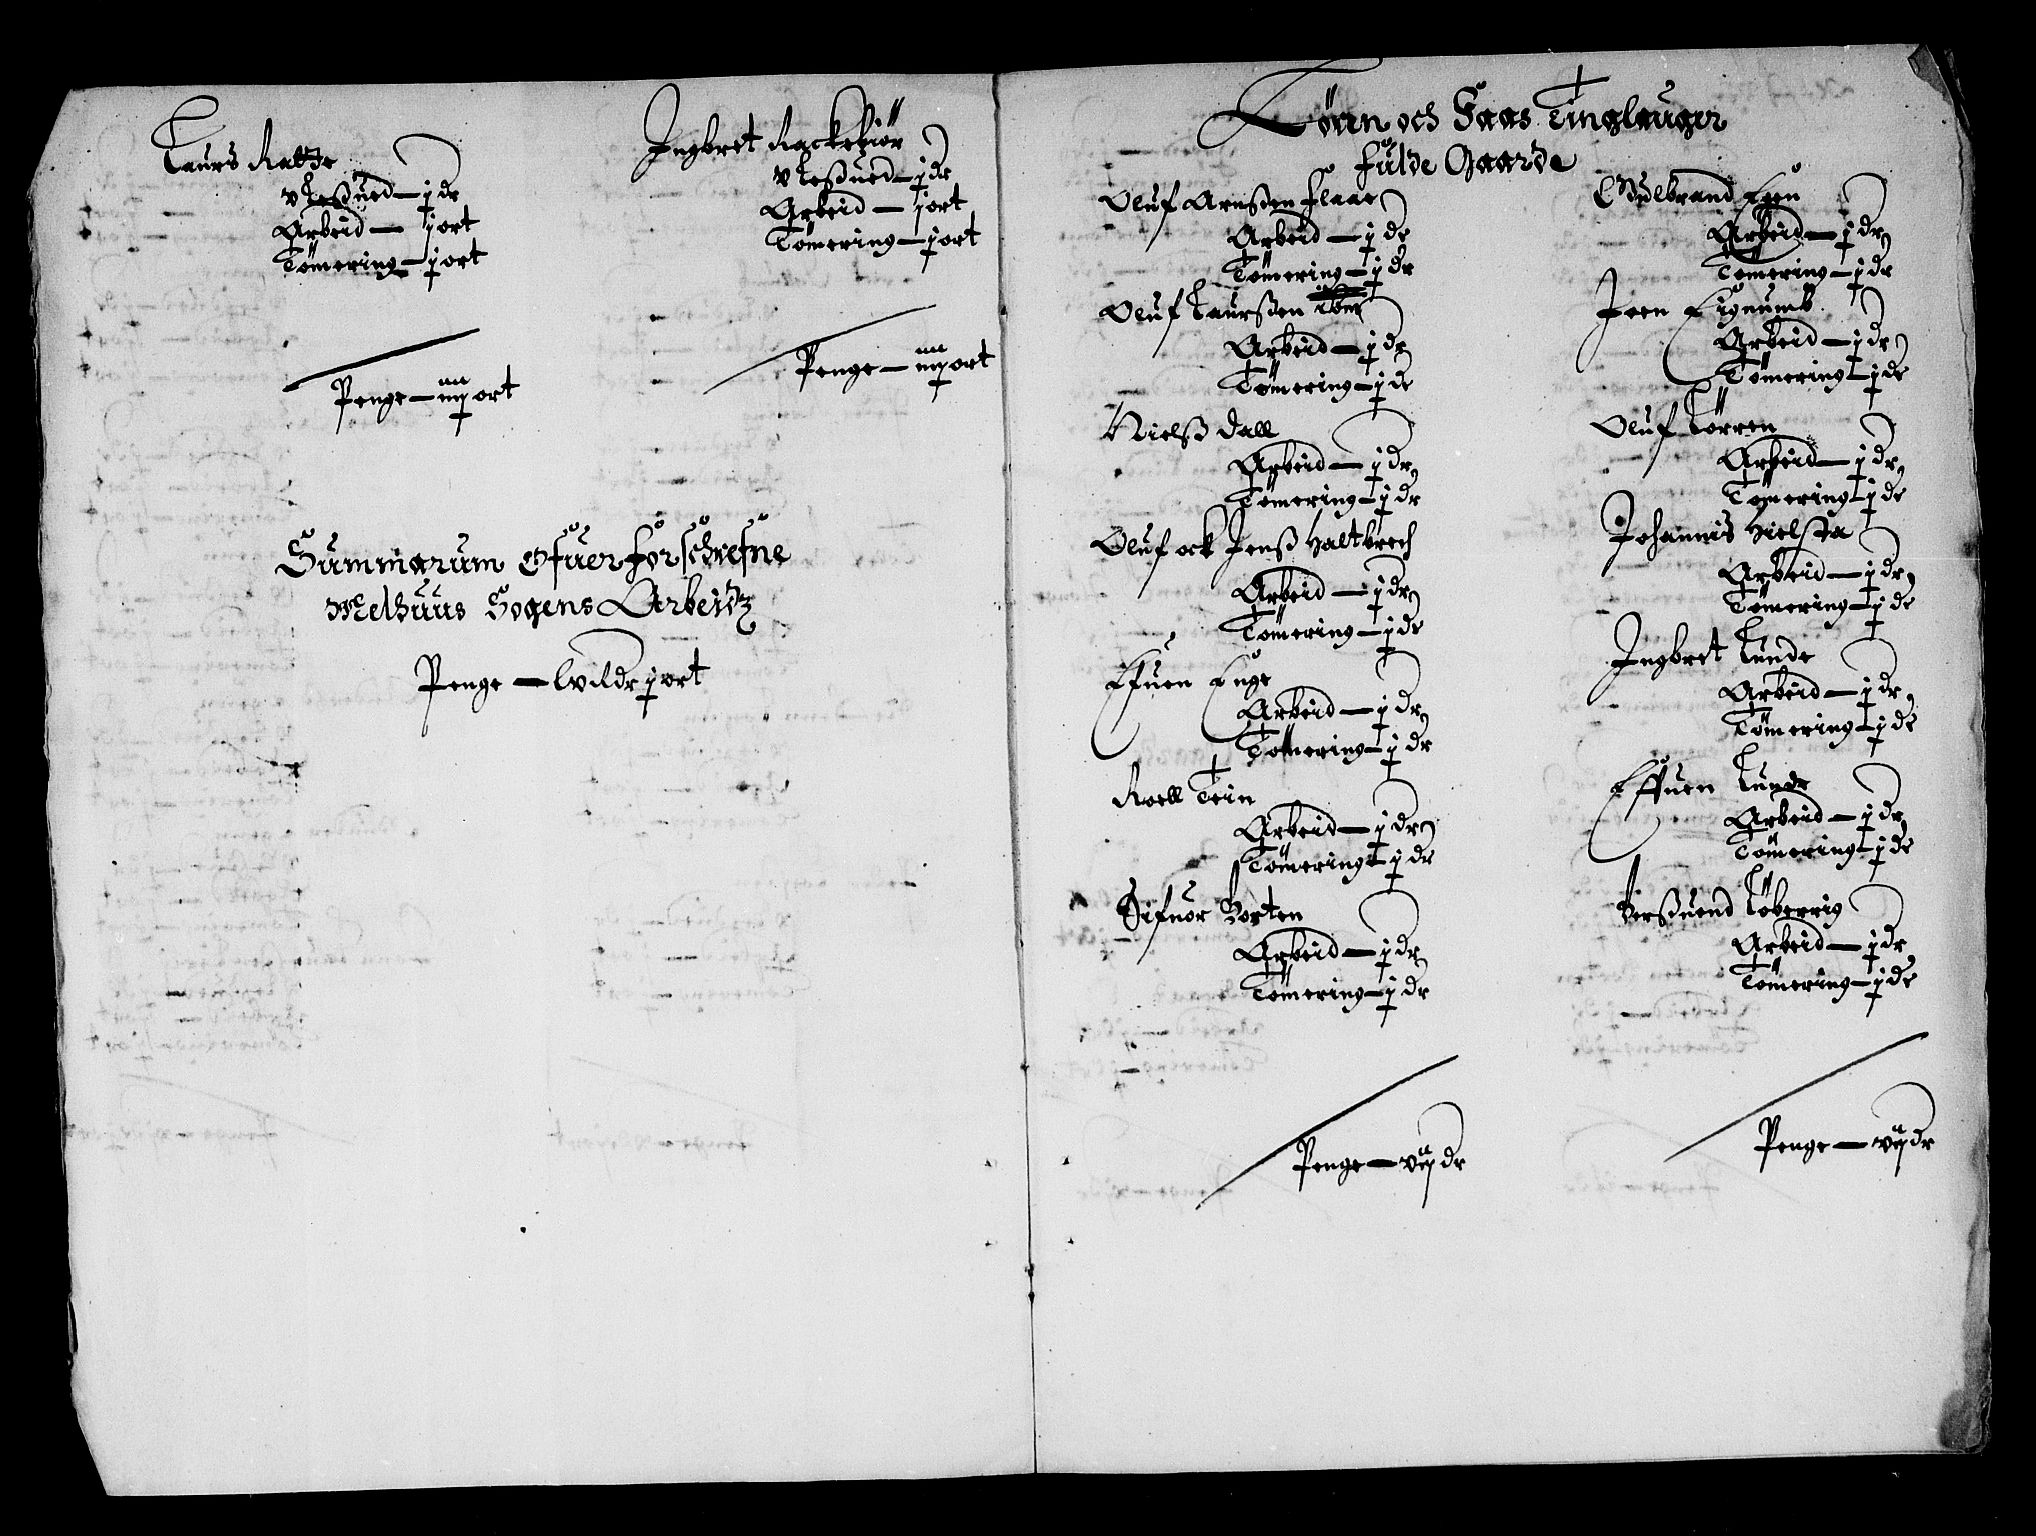 Laurs Ratze
v Leßued — j dr
Arbeid — j ort
Tömering — j ort
Penge — iiij ort
Ingbret Rackebiör
v Leßued — j dr
Arbeid — j ort
Tömering — j ort
Penge — iiij ort
Summarum Ofuer forschrefne
Melhuus Sogens Arbeidtz
Penge — lvii dr j ort
och Saas Tinglauger
fulde Gaarde
Oluf Arnßen Flaae
Arbeid — j dr
Tömering — j dr
Oluf Laurßen
Arbeid — j dr
Tömering — j dr
Nielß Dall
Arbeid — j dr
Tömering — j dr
Oluf ock Jenß Haltbrech
Arbeid — j dr
Tömering — j dr
Efuen Enge
Arbeid — j dr
Tömering — j dr
Roell Tein
Arbeid — j dr
Tömering — j dr
Sifuor Borten
Arbeid — j dr
Tömering — j dr
Penge — vij dr
Gulbrand
Arbeid — j dr
Tömering — j dr
Joen Eignumb
Arbeid — j dr
Tömering — j dr
Oluf Lörren
Arbeid — j dr
Tömering — j dr
Johannis Hielsta
Arbeid — j dr
Tömering — j dr
Ingbret Lunde
Arbeid — j dr
Tömering — j dr
Effuen Lunde
Arbeid — j dr
Tömering — j dr
Berßuend Löberrig
Arbeid — j dr
Tömering — j dr
Penge — vij dr